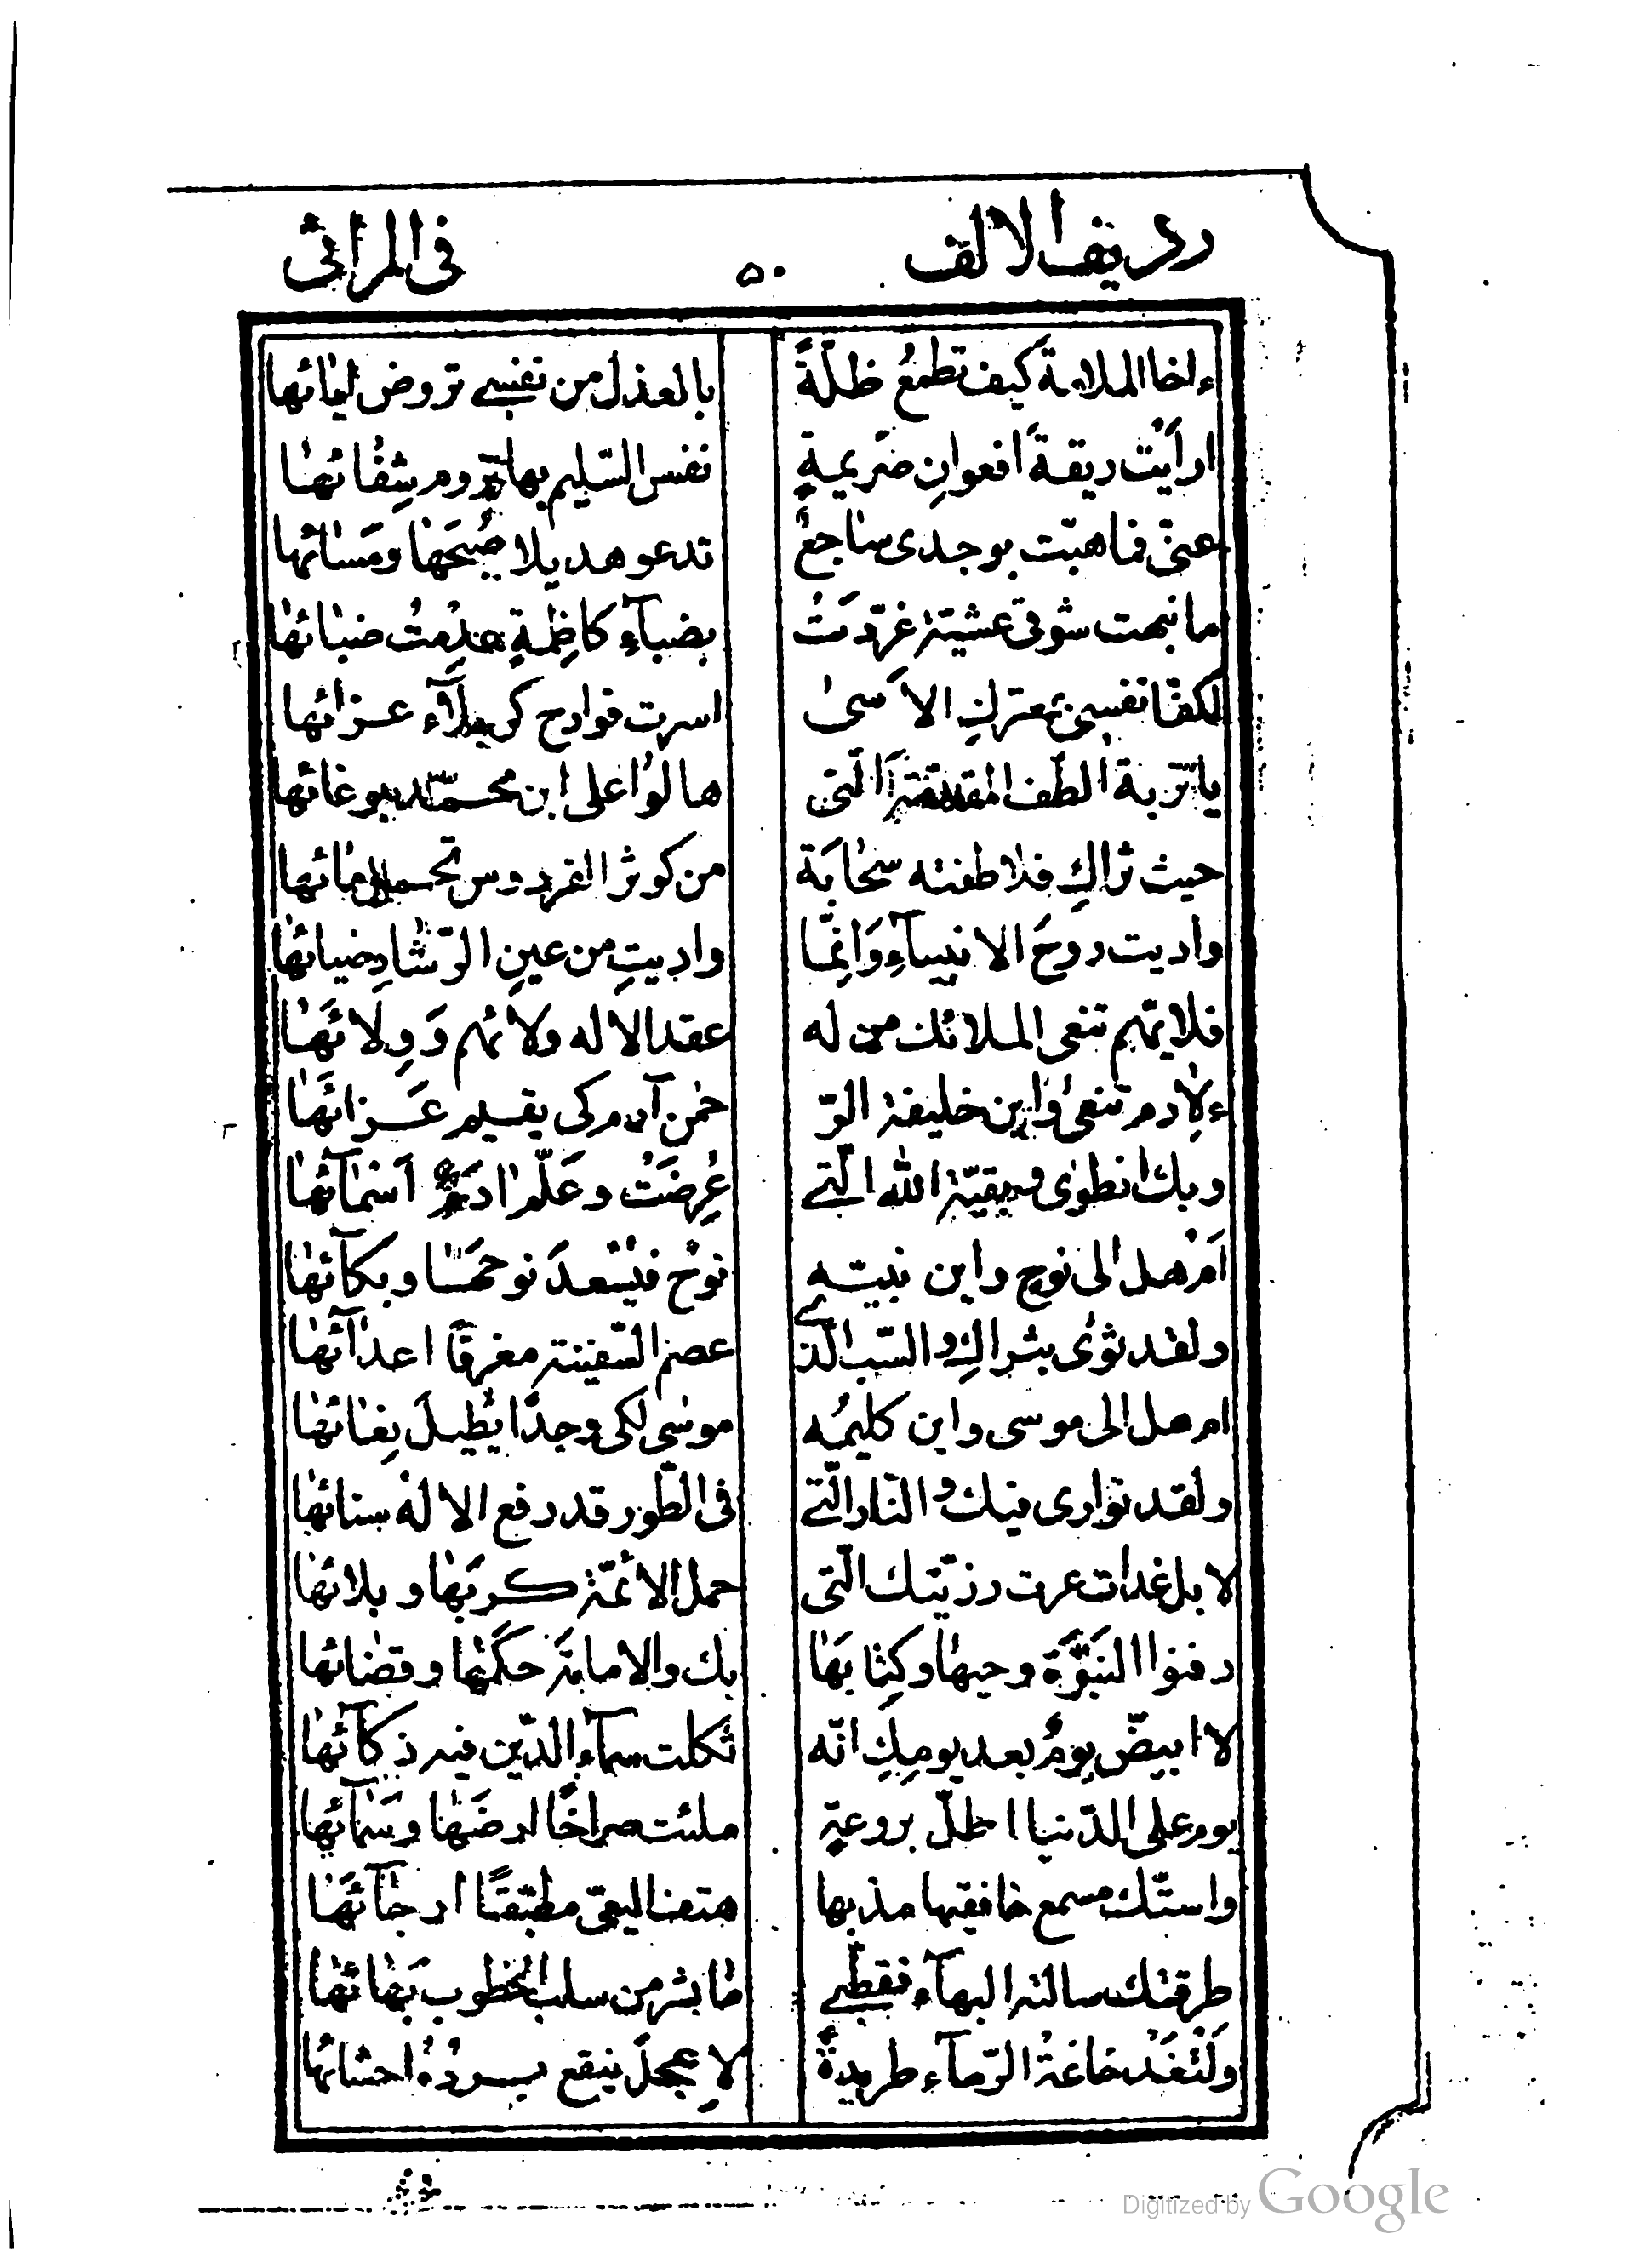 ردیف الالف ٥٠ فی المراثی
ءاخا الملامة کیف تطمعُ ظلّةً بالعذل من نفسی تروض ابائها
ارأیت ریقةَ افعوانِ صَریمةٍ نفس السّلیم بها تروم شِفائها
عنّی فما هبّت بوجدی ساجعٌ تدعو هدیلا صُبحَها ومَسائها
ما نبهت شوقی عشیّة غرّدَتْ بضبآءِ کاظِمةٍ عدِمتُ ضبائها
لکنّما نفسی بمعتركِ الاَسیٰ اسرت فوادح کربلآء عزائها
یا تربة الطّف المقدّسة الّتی هالُوا علی ابن محمّد بوغائها
حیث ثراكِ فلاطفته سحابَة من کوثر الفردوس تحمل مائها
واریت روحَ الانبیآءِ وَانِمّا واریتِ من عینِ الرّشادِ ضیائها
فلایّهم تنعی الملائك من له عقد الاله ولائهم وَوِلائَها
ءلاِدم تنعیٰ وَاین خلیفة الرّ حمٰن آدم کی یقیم عَزائَها
وبك انطوٰی وبقیّة الله الّتے عُرِضَتْ وعَلّم ادَم اَسْمآئَها
اَمْ هل الی نوح واین نبیّه نوحٌ فیُسْعدَ نوحَها وبکآئها
ولقد ثوٰی بثراكِ والسّبب الّذے عصم السّفینة مغرقًا اعدآئَها
ام هل الی موسی واین کلیمُه موسٰی لکی وجدًا یُطیلَ نِعٰائها
ولقد تواری فیك والنّار الّتے فی الطّور قد رفع الالٰهُ سنائها
لا بل غداتَ عرت رزیّتك الّتی حمل الائمّة کربَها وبلائها
دفنوا النبوّة وحیها وکِتابَها بك والامامةَ حکمَها وقضائها
لا ابیضّ یومٌ بعد یومِكِ انّه ثکلت سمآء الدّین فیه ذکآئها
یوم علی الدّنیا اطلّ بروعةٍ ملئت صراخًا ارضَها وسَمآئها
واستّك مسمع خافقیها مذ بها هتف النعیّ مطبّقًا ارجآئَها
طرقتك سالبة البهآء فقطّبے ما بشر من سلب الخطوب بَهائها
ولْتغدُ خائمةُ الرّجآء طریدةً لا سجلَ ینقع بردُهُ احشائها